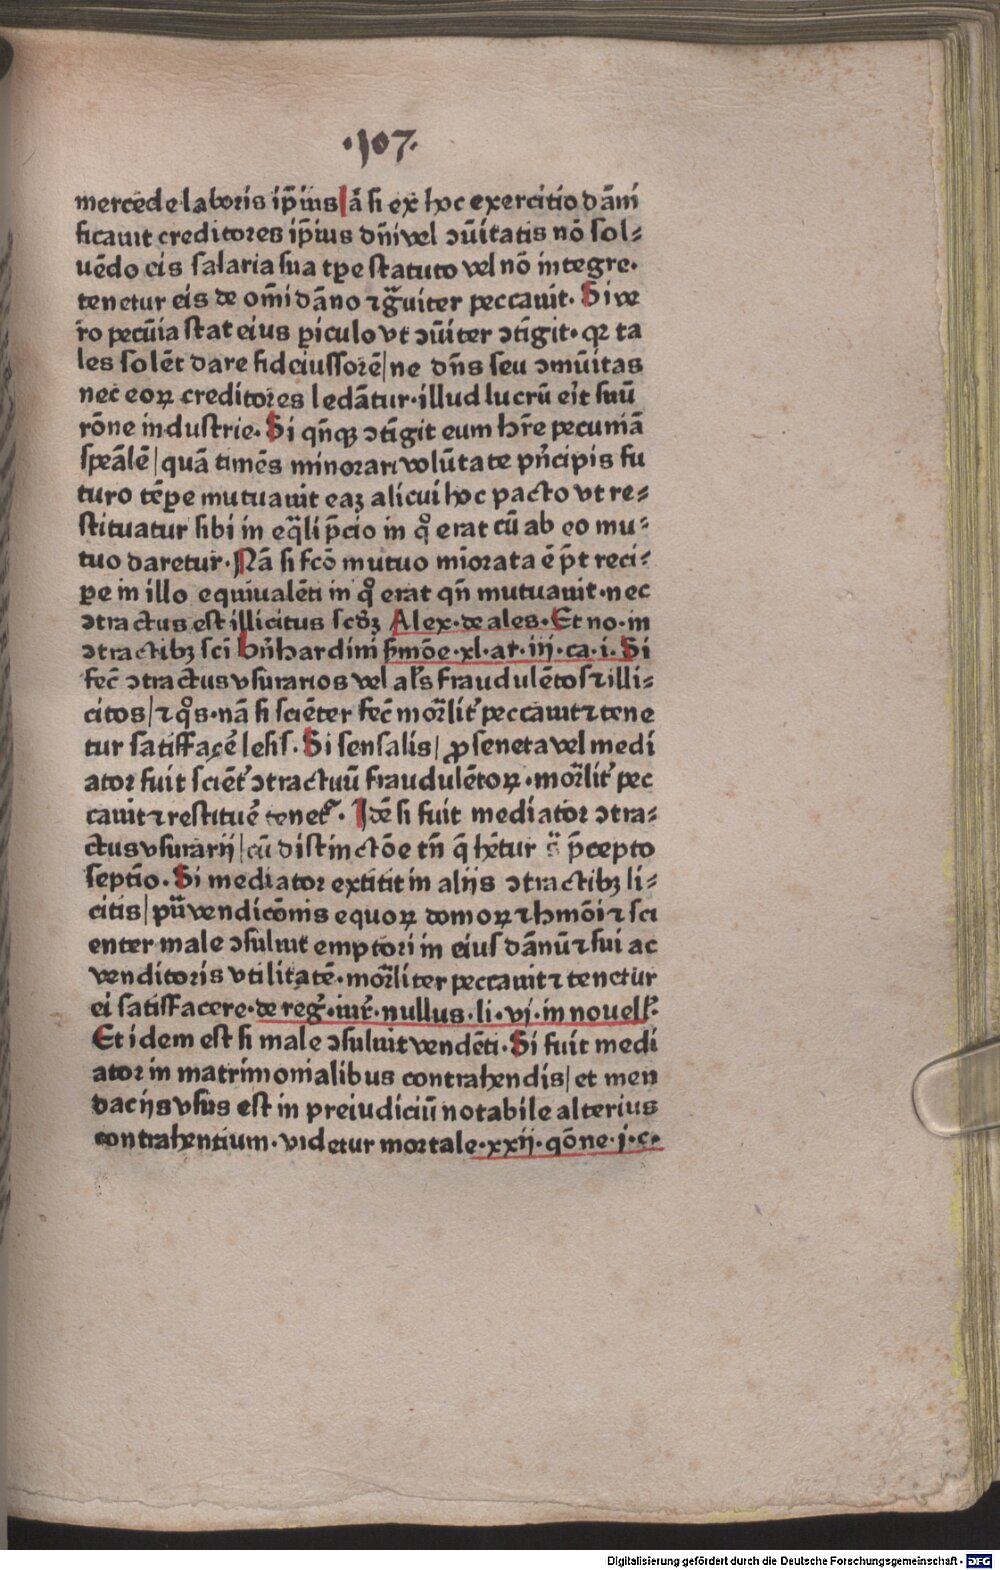 ·107·
mercede laboris ip̄ius Iā si ex hoc exercitio dāni
ficauit creditores ip̄ius dn̄i vel ↄūitatis nō sol⸗
uēdo eis salaria sua tꝑe statuto vel nō integre·
tenetur eis de om̄i dāno ⁊ gͣuiter peccauit· Si ve
ro pecūia stat eius ꝑiculo vt ↄūiter ↄtīgit· qꝛ ta
les solēt dare fideiussorē/ ne dn̄s seu ↄmūitas
nec eoꝝ creditores ledātur· illud lucrū erit suū
rōne industrie· Si qn̄qꝫ ↄtīgit eum hr̄e pecuniā
speālē/ quā timēs minorari volūtate pn̄cipis fu
turo tēꝑe mutuauit eaꝫ alicui hoc pacto vt re⸗
stituatur sibi in eq̄li p̄cio in qͦ erat cū ab eo mu⸗
tuo daretur· Nā si fcō mutuo mīorata ē p̄t reci⸗
ꝑe in illo equiualēti in qͦ erat qn̄ mutuauit· nec
ↄtractus est illicitus scd̄ꝫ Alex· de ales· Et no· in
ↄtractibꝫ scī bn̄hardini ẜmōe· xl· ar· iij· ca· i· Si
fec̄ ↄtractus vsurarios vel al̄s fraudulētos ⁊ illi⸗
citos/ ⁊ qͦs· nā si sciēter fec̄ mor̄lit᷑ peccauit ⁊ tene
tur satisfacē lesis· Si sensalis/ ꝓseneta vel medi
ator fuit sciēt᷑ ↄtractuū fraudulētoꝝ· mor̄lit᷑ pec
cauit ⁊ restituē tenet᷑· Idē si fuit mediator ↄtra⸗
ctus vsurarij/ cū distinctōe tn̄ q̄ hētur ī p̄cepto
septīo· Si mediator extitit in alijs ↄtractibꝫ li⸗
citis/ pūͣ vendicōnis equoꝝ domoꝝ ⁊ hmōi ⁊ sci
enter male ↄsuluit emptori in eius dānū ⁊ sui ac
venditoris vtilitatē· mor̄liter peccauit ⁊ tenetur
ei satisfacere· de reg᷑· iur᷑· nullus· li· vj· in nouell᷑·
Et idem est si male ↄsuluit vendēti· Si fuit medi
ator in matrimonialibus contrahendis/ et men
dacijs vsus est in preiudiciū notabile alterius
contrahentium· videtur mortale· xxij· qōne· j· c·
Digitalisierung gefördert durch die Deutsche Forschungsgemeinschaft · DFG